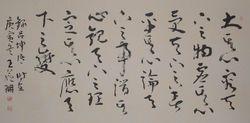 大其心容天
下之物虛其心
受天下之善
平其心論天
下之事潛其
心觀天下之理
定其心應天
下之變
錄呂坤句 時在
庚寅